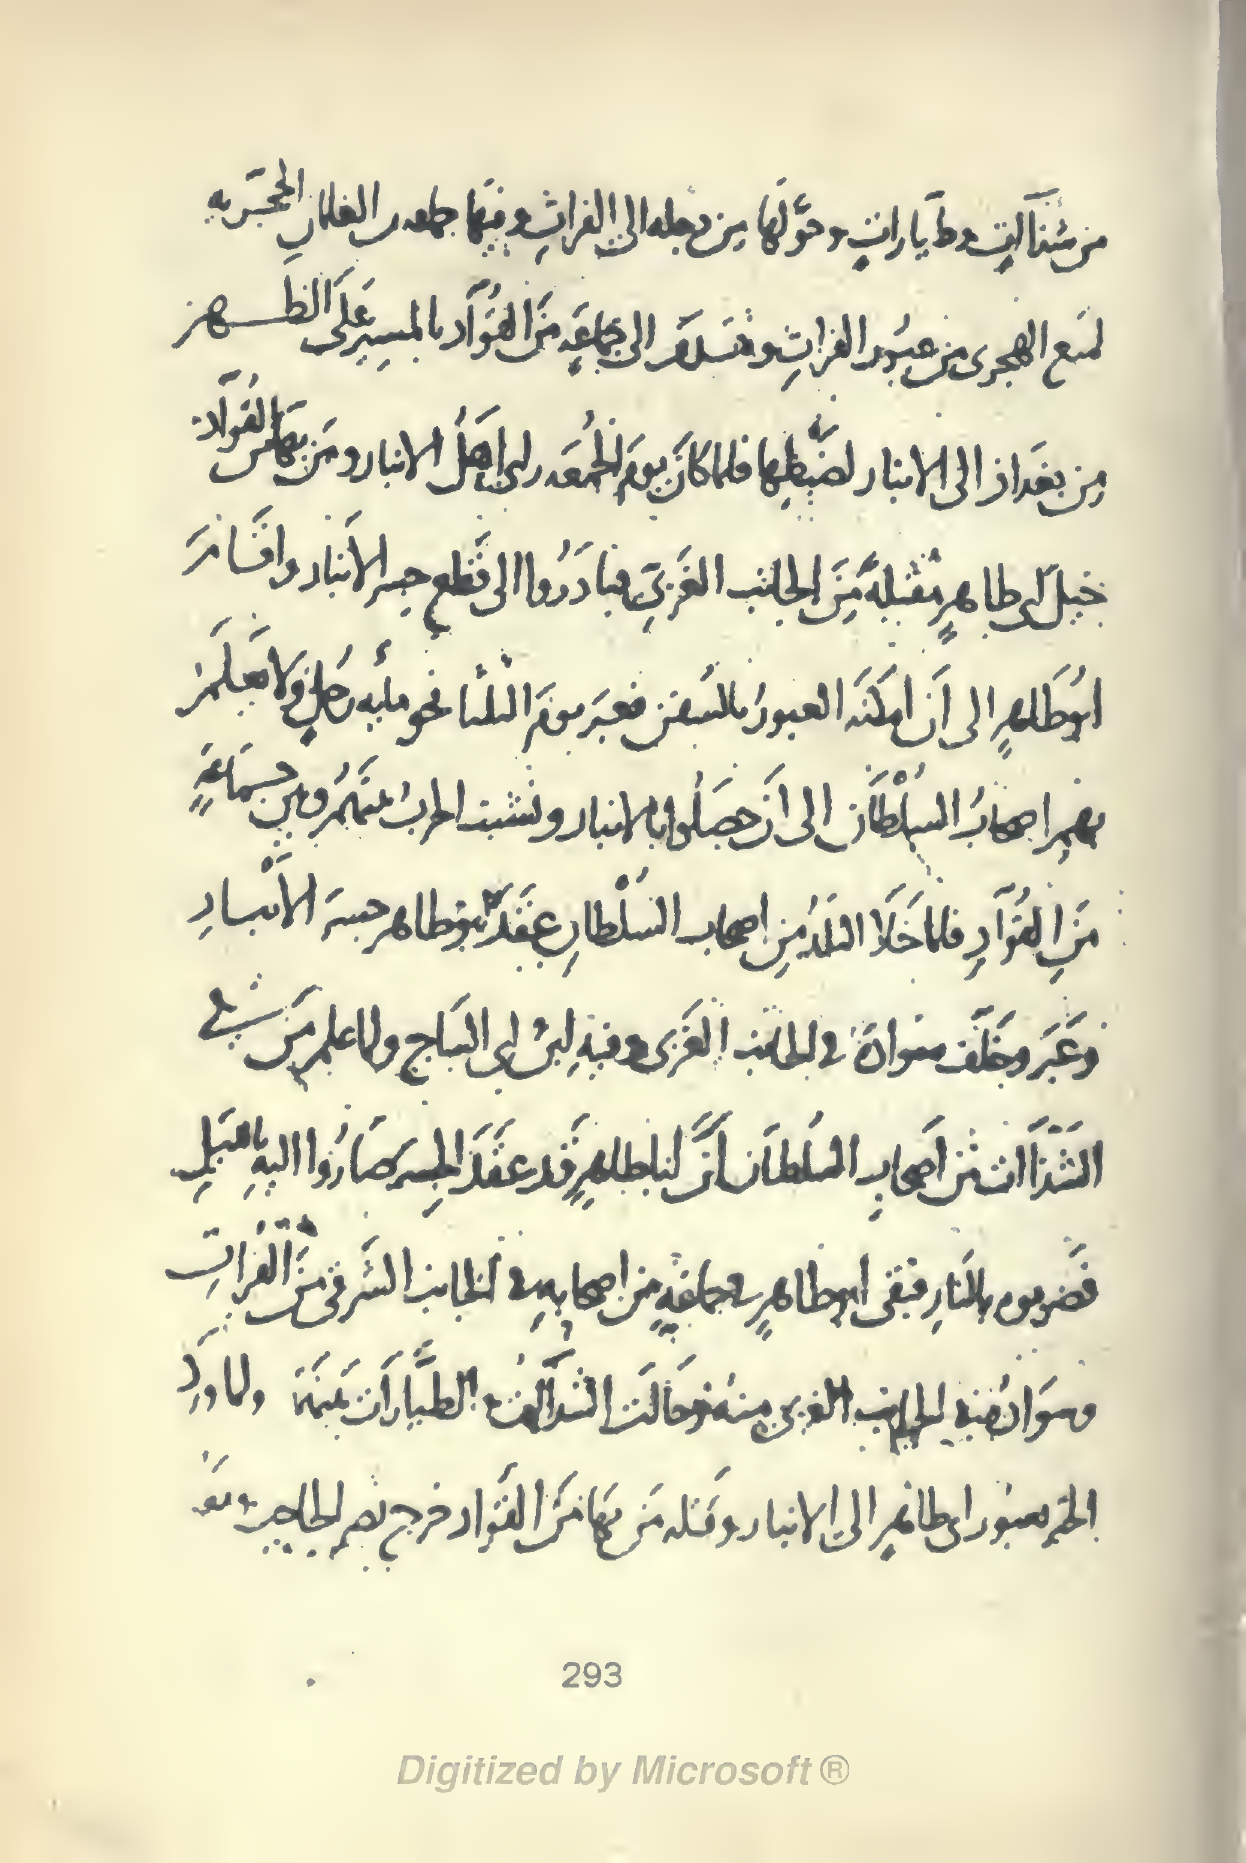 من شذاآت وطيارات وحولها من دجله الى الفرات وفيها جماعه من الغلمان الحجريه
لمنع الهجرى من عبور الفرات وتقدم الى جماعة من القواد بالمسير على الظهر
من بغداذ الى الانبار لضبطها فلما كان يوم الجمعه راى اهل الانبار ومن بها من القواد
خيل ابى طاهر مقبلة من الجانب الغربى فبادروا الى قطع جسر الانبار واقام
ابو طاهر الى ان امكنه العبور بالسفن فعبر يوم الثلثا نحو مايه رجل ولا يعلم
بهم اصحاب السلطان الى ان حصلوا بالانبار ونشبت الحرب بينهم وبين جماعة
من القواد فلما خلا البلد من اصحاب السلطان عقد ابو طاهر جسر الانبار
وعبر وخلف سواده في الجانب الغربى وفيه ابن ابى الساج ولما علم من في
الشذاآت من اصحاب السلطان ان ابا طاهر قد عقد الجسر صاروا اليه بالليل
فضربوه بالنار فبقى ابو طاهر في جماعة من اصحابه في الجانب الشرقى من الفرات
وسواده في الجانب الغربى منه وحالت الشذاآت والطيارات بينهم ولما ورد
الخبر بعبور ابى طاهر الى الانبار وقتله من بها من القواد خرج نصر الحاجب
293
Digitized by Microsoft ®